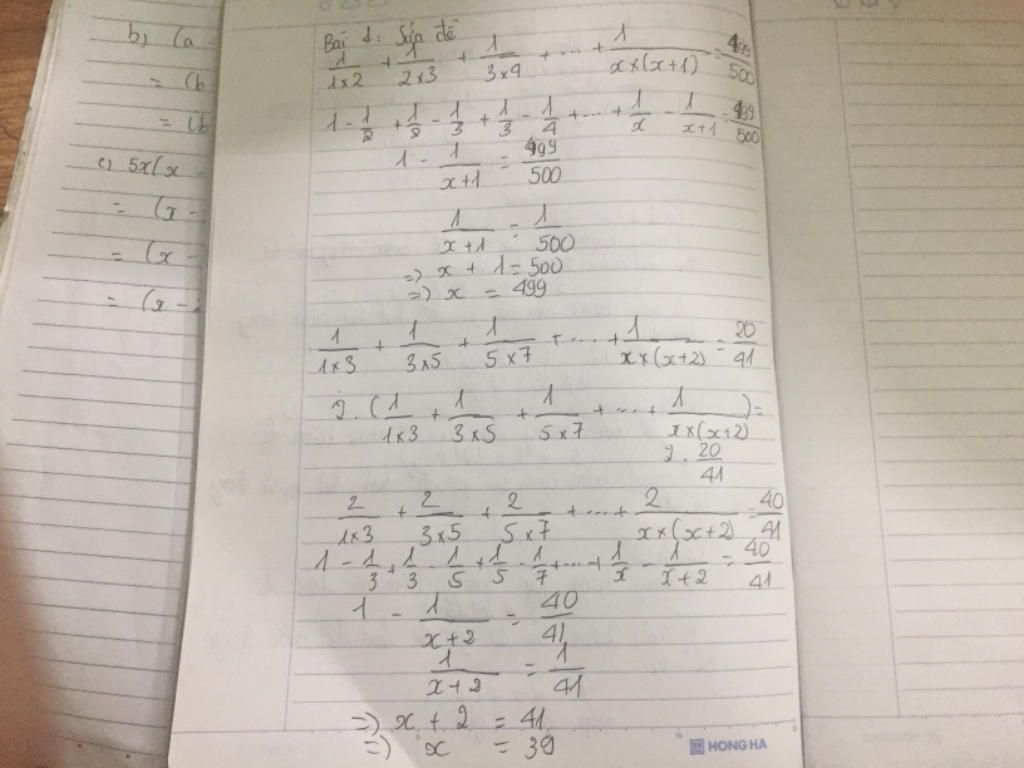 b) (a
= (b
= (b
c) 5x(x -
= (x -
= (x -
= (x -
Bài 1: Sửa đề
1/(1×2) + 1/(2×3) + 1/(3×4) + ... + 1/(x×(x+1)) = 499/500
1 - 1/2 + 1/2 - 1/3 + 1/3 - 1/4 + ... + 1/x - 1/(x+1) = 499/500
1 - 1/(x+1) = 499/500
1/(x+1) = 1/500
=> x + 1 = 500
=> x = 499
1/(1×3) + 1/(3×5) + 1/(5×7) + ... + 1/(x×(x+2)) = 20/41
2.(1/(1×3) + 1/(3×5) + 1/(5×7) + ... + 1/(x×(x+2))) =
2.20/41
2/(1×3) + 2/(3×5) + 2/(5×7) + ... + 2/(x×(x+2)) = 40/41
1 - 1/3 + 1/3 - 1/5 + 1/5 - 1/7 + ... + 1/x - 1/(x+2) = 40/41
1 - 1/(x+2) = 40/41
1/(x+2) = 1/41
=> x + 2 = 41
=> x = 39
HONG HA